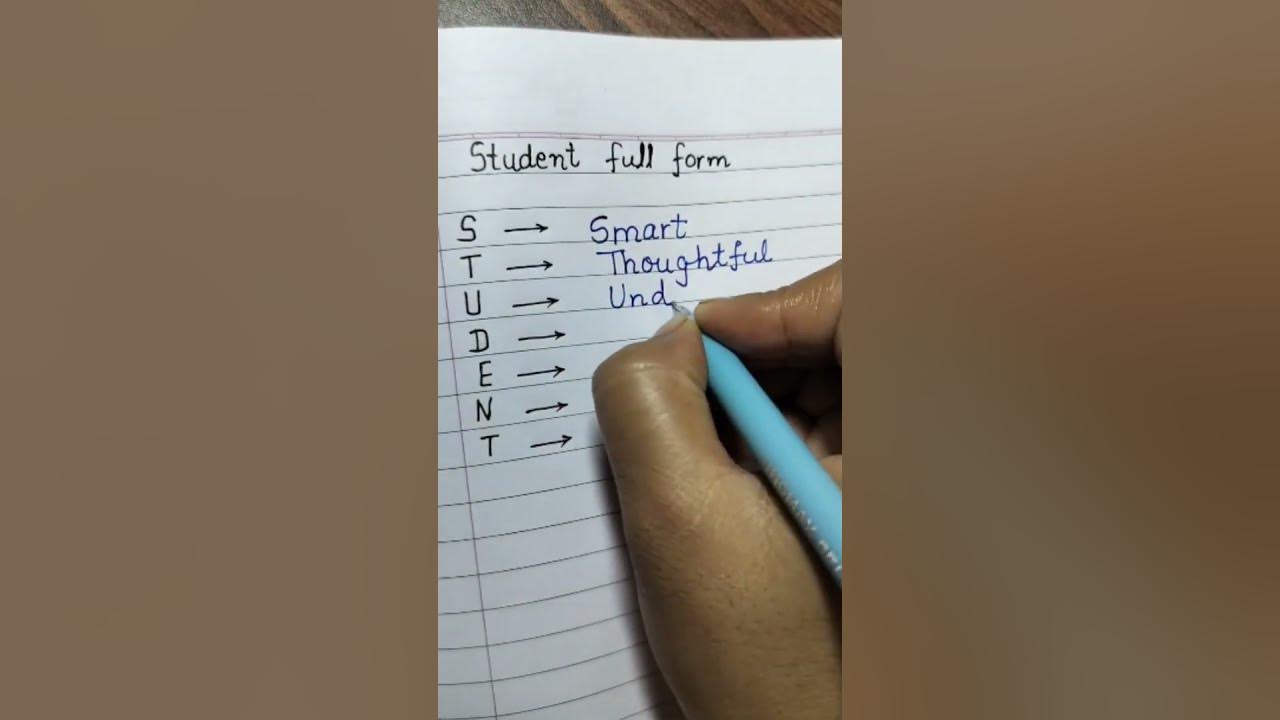 Student full form
S → Smart
T → Thoughtful
U → Und
D →
E →
N →
T →